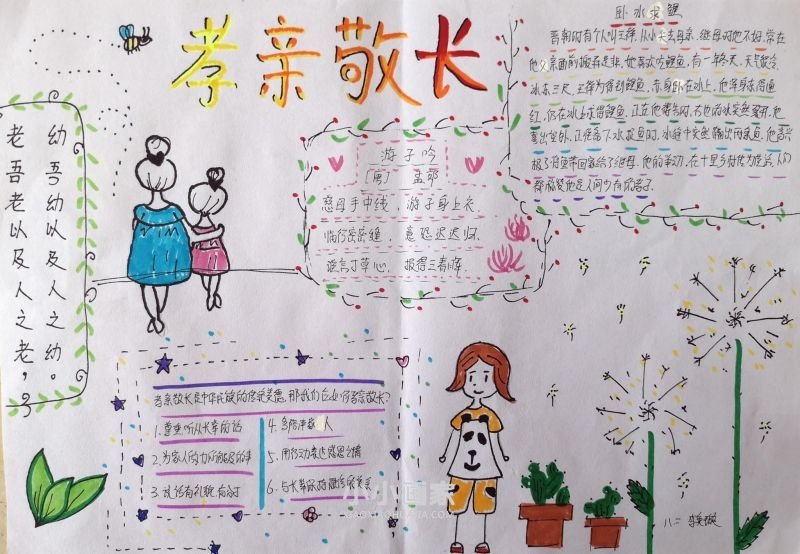 孝亲敬长
老吾老以及人之老，
幼吾幼以及人之幼。
游子吟
[唐] 孟郊
慈母手中线，游子身上衣。
临行密密缝，意恐迟迟归。
谁言寸草心，报得三春晖。
卧冰求鲤
晋朝时有个人叫王祥，从小失去母亲，继母对他不好，常在
他父亲面前搬弄是非，她喜欢吃鲤鱼，有一年冬天，天气寒冷
冰冻三尺，王祥为得到鲤鱼，赤身卧在冰上，他浑身冻得通
红，仍在冰上求得鲤鱼，正在他祷告时，右边的冰突然裂开，他
喜出望外，正准备下水捉鱼时，冰缝中突然
极了，将鱼带回家给了继母，他的举动，在十里乡村传为佳话，人们
都称赞他是人间少有的孝子。
孝亲敬长是中华民族的传统美德，那我们应如何孝亲敬长？
1.尊重听从长辈的话
2.为家人做力所能及的事
3.说话有礼貌
4.多陪伴家人
5.用行动表达感恩之情
6.与长辈
小小画家
八二